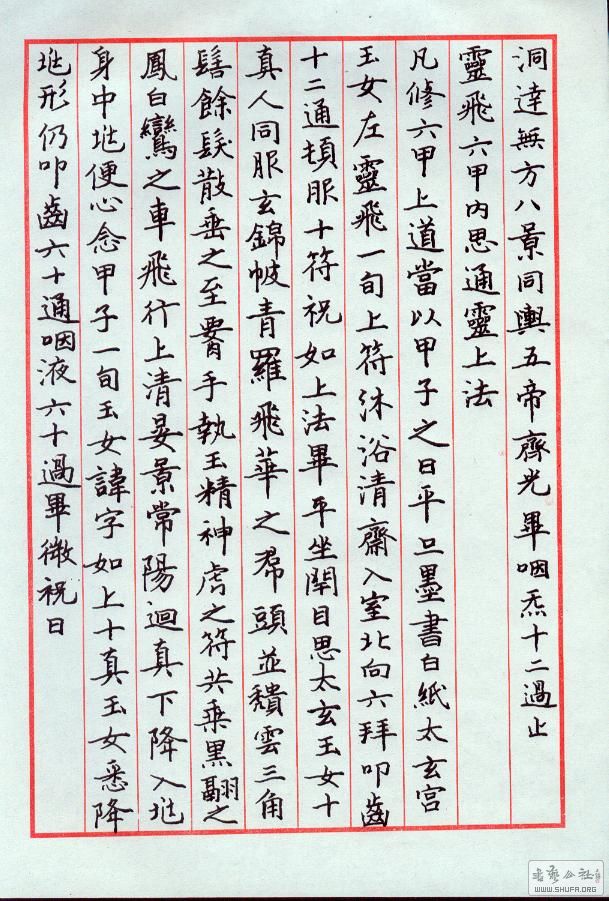 洞達無方八景同輿五帝齊光畢咽炁十二過止
靈飛六甲內思通靈上法
凡修六甲上道當以甲子之日平旦墨書白紙太玄宮
玉女左靈飛一旬上符沐浴清齋入室北向六拜叩齒
十二通頓服十符祝如上法畢平坐閇目思太玄玉女十
真人同服玄錦帔青羅飛華之帬頭並穨雲三角
髻餘髮散垂之至署手執玉精神虎之符共乘黑翮之
鳳白鸞之車飛行上清晏景常陽迴真下降入𡉟
身中𡉟便心念甲子一旬玉女諱字如上十真玉女悉降
𡉟形仍叩齒六十通咽液六十過畢微祝曰
书艺公社
WWW.SHUFA.ORG